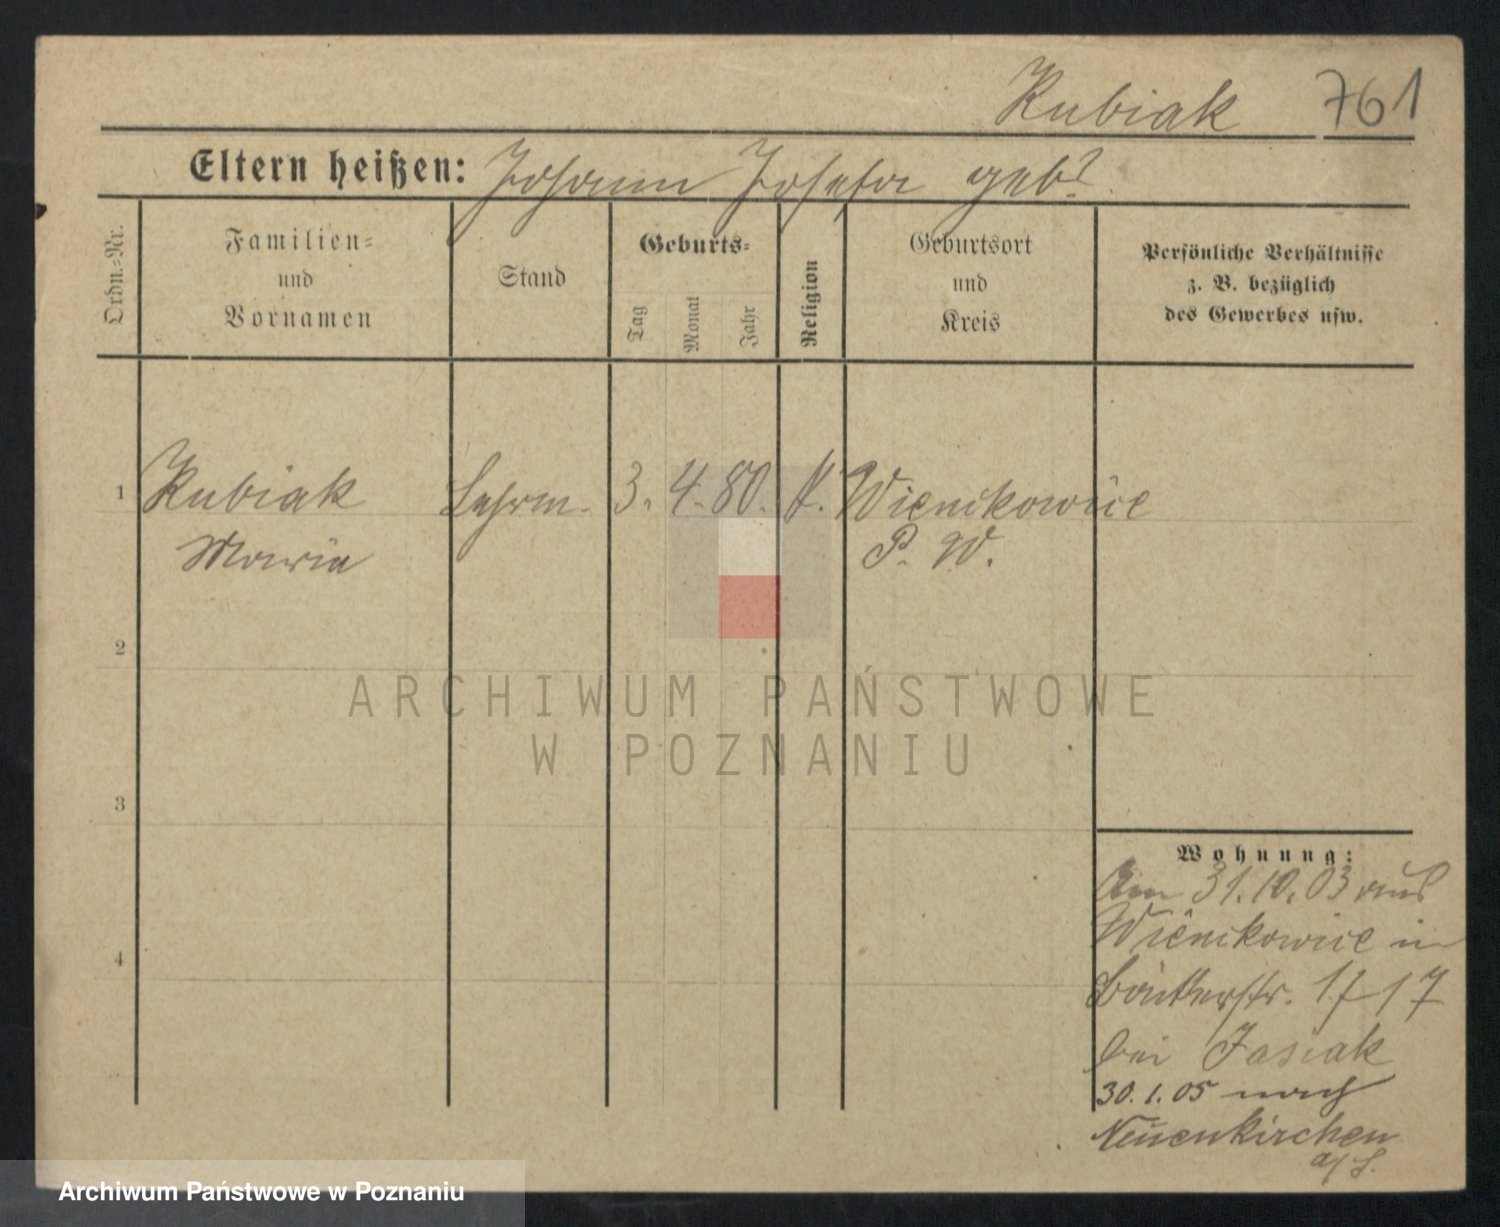 Kubiak 761
Eltern heißen: Johann Josefa geb?
Ordn.-Nr.
Familien-
und
Vornamen
Stand
Geburts-
Tag
Monat
Jahr
Religion
Geburtsort
und
Kreis
Persönliche Verhältnisse
z. B. bezüglich
des Gewerbes usw.
1 Kubiak 3. 4. 80. k. Wienckowice
Maria P. W.
2
3
4
Wohnung:
Am 31.10.03 aus
Wienckowice in
17
bei Jasiak
30.1.05 nach
Neuenkirchen
ARCHIWUM PAŃSTWOWE
W POZNANIU
Archiwum Państwowe w Poznaniu